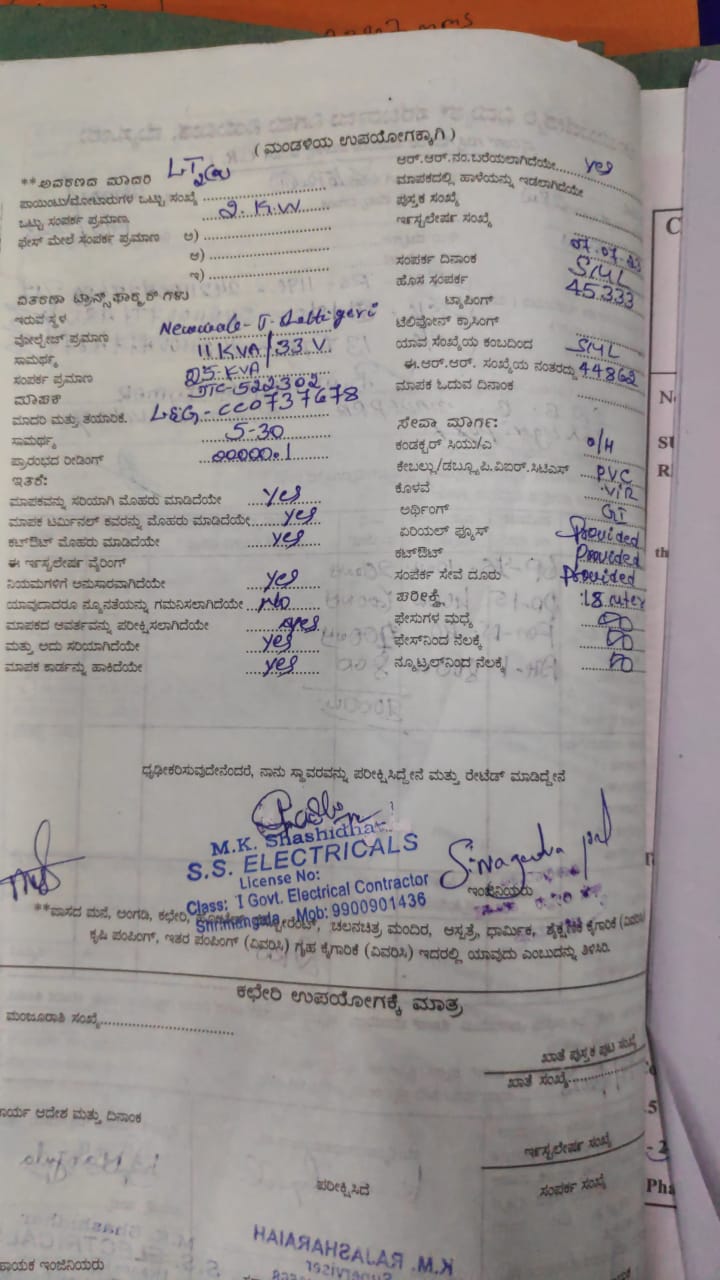 ( ಮಂಡಳಿಯ ಉಪಯೋಗಕ್ಕಾಗಿ )
**ಅವಕರಣದ ಮಾದರಿ LT2
ಪಾಯಿಂಟು/ಮೋಟಾರುಗಳ ಒಟ್ಟು ಸಂಖ್ಯೆ
ಒಟ್ಟು ಸಂಪರ್ಕ ಪ್ರಮಾಣ 2. K.W
ಫೇಸ್ ಮೇಲೆ ಸಂಪರ್ಕ ಪ್ರಮಾಣ ಅ)
ಆ)
ಇ)
ವಿತರಣಾ ಟ್ರಾನ್ಸ್‌ಫಾರ್ಮರ್ ಗಳು
ಇರುವ ಸ್ಥಳ T. Shettigeri
ವೋಲ್ಟೇಜ್ ಪ್ರಮಾಣ 11 KVA/33 V.
ಸಾಮರ್ಥ್ಯ 25 KVA
ಸಂಪರ್ಕ ಪ್ರಮಾಣ 522302
ಮಾಪಕ
ಮಾದರಿ ಮತ್ತು ತಯಾರಿಕೆ. L&G - CC0737678
ಸಾಮರ್ಥ್ಯ 5-30
ಪ್ರಾರಂಭದ ರೀಡಿಂಗ್ 00000.1
ಇತರೆ:
ಮಾಪಕವನ್ನು ಸರಿಯಾಗಿ ಮೊಹರು ಮಾಡಿದೆಯೇ yes
ಮಾಪಕ ಟರ್ಮಿನಲ್ ಕವರನ್ನು ಮೊಹರು ಮಾಡಿದೆಯೇ yes
ಕಟ್‌ಔಟ್ ಮೊಹರು ಮಾಡಿದೆಯೇ yes
ಈ ಇನ್ಸ್ಟಲೇಷನ್ ವೈರಿಂಗ್
ನಿಯಮಗಳಿಗೆ ಅನುಸಾರವಾಗಿದೆಯೇ yes
ಯಾವುದಾದರೂ ನ್ಯೂನತೆಯನ್ನು ಗಮನಿಸಲಾಗಿದೆಯೇ No
ಮಾಪಕದ ಆವರ್ತವನ್ನು ಪರೀಕ್ಷಿಸಲಾಗಿದೆಯೇ yes
ಮತ್ತು ಅದು ಸರಿಯಾಗಿದೆಯೇ yes
ಮಾಪಕ ಕಾರ್ಡನ್ನು ಹಾಕಿದೆಯೇ yes
ಆರ್.ಆರ್.ನಂ.ಬರೆಯಲಾಗಿದೆಯೇ yes
ಮಾಪಕದಲ್ಲಿ ಹಾಳೆಯನ್ನು ಇಡಲಾಗಿದೆಯೇ
ಪುಸ್ತಕ ಸಂಖ್ಯೆ
ಇನ್ಸ್ಟಲೇಷನ್ ಸಂಖ್ಯೆ
ಸಂಪರ್ಕ ದಿನಾಂಕ 07.07.23
ಹೊಸ ಸಂಪರ್ಕ SML
ಟ್ಯಾಪಿಂಗ್ 45333
ಟೆಲಿಫೋನ್ ಕ್ರಾಸಿಂಗ್
ಯಾವ ಸಂಖ್ಯೆಯ ಕಂಬದಿಂದ SML
ಈ.ಆರ್.ಆರ್. ಸಂಖ್ಯೆಯ ನಂತರದ್ದು 44862
ಮಾಪಕ ಓದುವ ದಿನಾಂಕ
ಸೇವಾ ಮಾರ್ಗ:
ಕಂಡಕ್ಟರ್ ಸಿಯು/ಎ O/H
ಕೇಬಲ್ಲು/ಡಬ್ಲ್ಯೂ.ಪಿ.ವಿಐಆರ್.ಸಿಟಿಎಸ್ PVC
ಕೊಳವೆ VIR
ಅರ್ಥಿಂಗ್ GI
ಏರಿಯಲ್ ಫ್ಯೂಸ್ Provided
ಕಟ್‌ಔಟ್ Provided
ಸಂಪರ್ಕ ಸೇವೆ ದೂರು Provided
ಪರೀಕ್ಷೆ 18
ಫೇಸುಗಳ ಮಧ್ಯೆ
ಫೇಸ್‌ನಿಂದ ನೆಲಕ್ಕೆ
ನ್ಯೂಟ್ರಲ್‌ನಿಂದ ನೆಲಕ್ಕೆ
ಧೃಢೀಕರಿಸುವುದೇನೆಂದರೆ, ನಾನು ಸ್ಥಾವರವನ್ನು ಪರೀಕ್ಷಿಸಿದ್ದೇನೆ ಮತ್ತು ರೇಟೆಡ್ ಮಾಡಿದ್ದೇನೆ
M.K. Shashidhar
S.S. ELECTRICALS
License No:
Class: I Govt. Electrical Contractor
Shrimangala Mob: 9900901436
ಇಂಜಿನಿಯರು
**ವಾಸದ ಮನೆ, ಅಂಗಡಿ, ಕಛೇರಿ, ಚಲನಚಿತ್ರ ಮಂದಿರ, ಆಸ್ಪತ್ರೆ, ಧಾರ್ಮಿಕ, ಶೈಕ್ಷಣಿಕ ಕೈಗಾರಿಕೆ (ವಿವರಿಸಿ)
ಕೃಷಿ ಪಂಪಿಂಗ್, ಇತರ ಪಂಪಿಂಗ್ (ವಿವರಿಸಿ) ಗೃಹ ಕೈಗಾರಿಕೆ (ವಿವರಿಸಿ) ಇದರಲ್ಲಿ ಯಾವುದು ಎಂಬುದನ್ನು ತಿಳಿಸಿರಿ.
ಕಛೇರಿ ಉಪಯೋಗಕ್ಕೆ ಮಾತ್ರ
ಮಂಜೂರಾತಿ ಸಂಖ್ಯೆ
ಖಾತೆ ಪುಸ್ತಕ ಪುಟ ಸಂಖ್ಯೆ
ಖಾತೆ ಸಂಖ್ಯೆ
ಕಾರ್ಯ ಆದೇಶ ಮತ್ತು ದಿನಾಂಕ
ಇನ್ಸ್ಟಲೇಷನ್ ಸಂಖ್ಯೆ
ಪರೀಕ್ಷಿಸಿದೆ
ಸಂಪರ್ಕ ಸಂಖ್ಯೆ
ಹಾಯಕ ಇಂಜಿನಿಯರು
K.M. RAJASHARAIAH